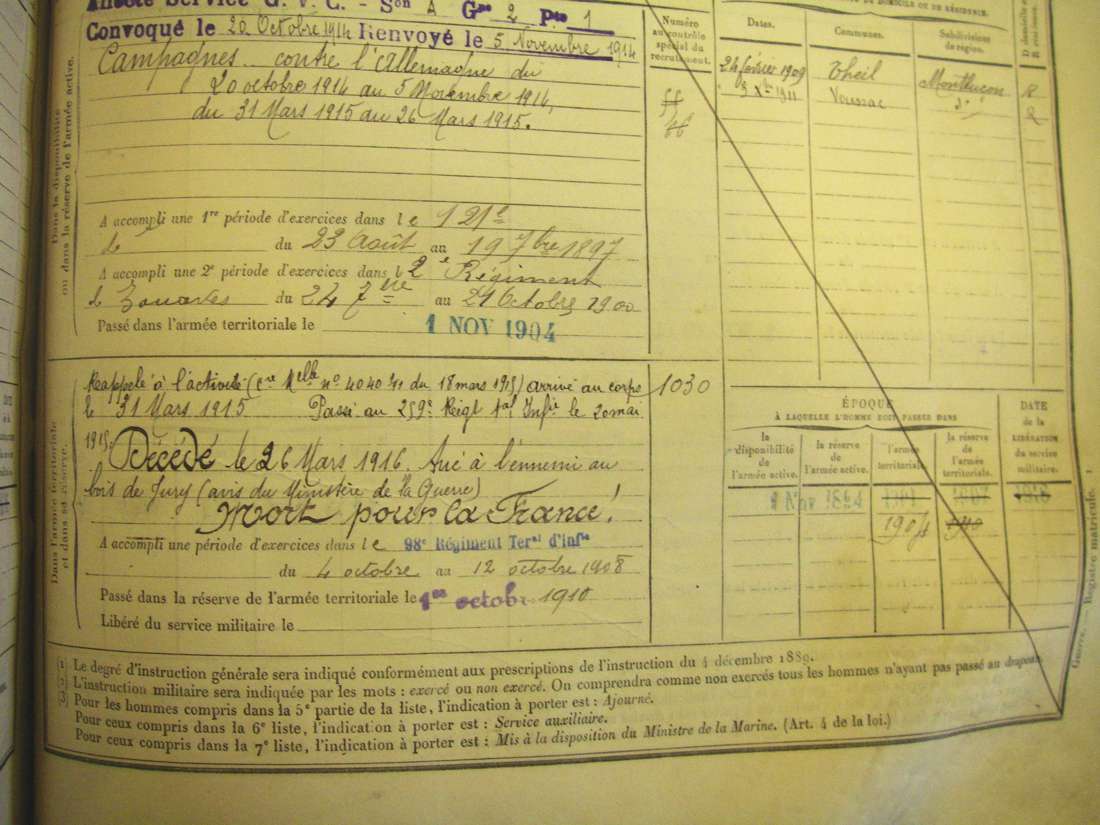 Affecté Service G. V. C. - Son A Gpe 2 Pte 1
Convoqué le 20 Octobre 1914 Renvoyé le 5 Novembre 1914
Campagnes contre l'Allemagne du
20 octobre 1914 au 5 Novembre 1914,
du 31 Mars 1915 au 26 Mars 1915.
Dans la disponibilité
ou dans la réserve de l'armée active.
A accompli une 1re période d'exercices dans le 121e
du 23 Août au 19 7bre 1897
A accompli une 2e période d'exercices dans le 2e Régiment
de Zouaves du 24 7bre au 21 Octobre 1900
Passé dans l'armée territoriale le 1 NOV 1904
Numéro
au contrôle
spécial du
recrutement.
DE DOMICILE OU DE RÉSIDENCE.
Dates. Communes. Subdivisions
de région. D domicile
24 février 1909 Theil Montluçon R
3 Xre 1911 Voussac do R
Dans l'armée territoriale
et dans sa réserve.
Rappelé à l'activité (Cre Melle no 4040 du 18 mars 1915) arrivé au corps 1030
le 31 Mars 1915 Passé au 259e Régt tal Infie le 20 mai
1915.
Décédé le 26 Mars 1916. Tué à l'ennemi au
bois de Jury (avis du Ministère de la Guerre)
Mort pour la France!
A accompli une période d'exercices dans le 98e Régiment Teral d'Infie
du 4 octobre au 12 octobre 1908
Passé dans la réserve de l'armée territoriale le 1er octobre 1910
Libéré du service militaire le
ÉPOQUE
À LAQUELLE L'HOMME DOIT PASSER DANS
la
disponibilité
de
l'armée active.
la réserve
de
l'armée active.
l'armée
territoriale.
la réserve
de
l'armée
territoriale.
DATE
de la
LIBÉRATION
du service
militaire.
1 Nov 1894 1901 1907
1904
Guerre. — Registre matricule.
(1) Le degré d'instruction générale sera indiqué conformément aux prescriptions de l'instruction du 4 décembre 1889.
(2) L'instruction militaire sera indiquée par les mots : exercé ou non exercé. On comprendra comme non exercés tous les hommes n'ayant pas passé au drapeau.
(3) Pour les hommes compris dans la 5e partie de la liste, l'indication à porter est : Ajourné.
Pour ceux compris dans la 6e liste, l'indication à porter est : Service auxiliaire.
Pour ceux compris dans la 7e liste, l'indication à porter est : Mis à la disposition du Ministre de la Marine. (Art. 4 de la loi.)